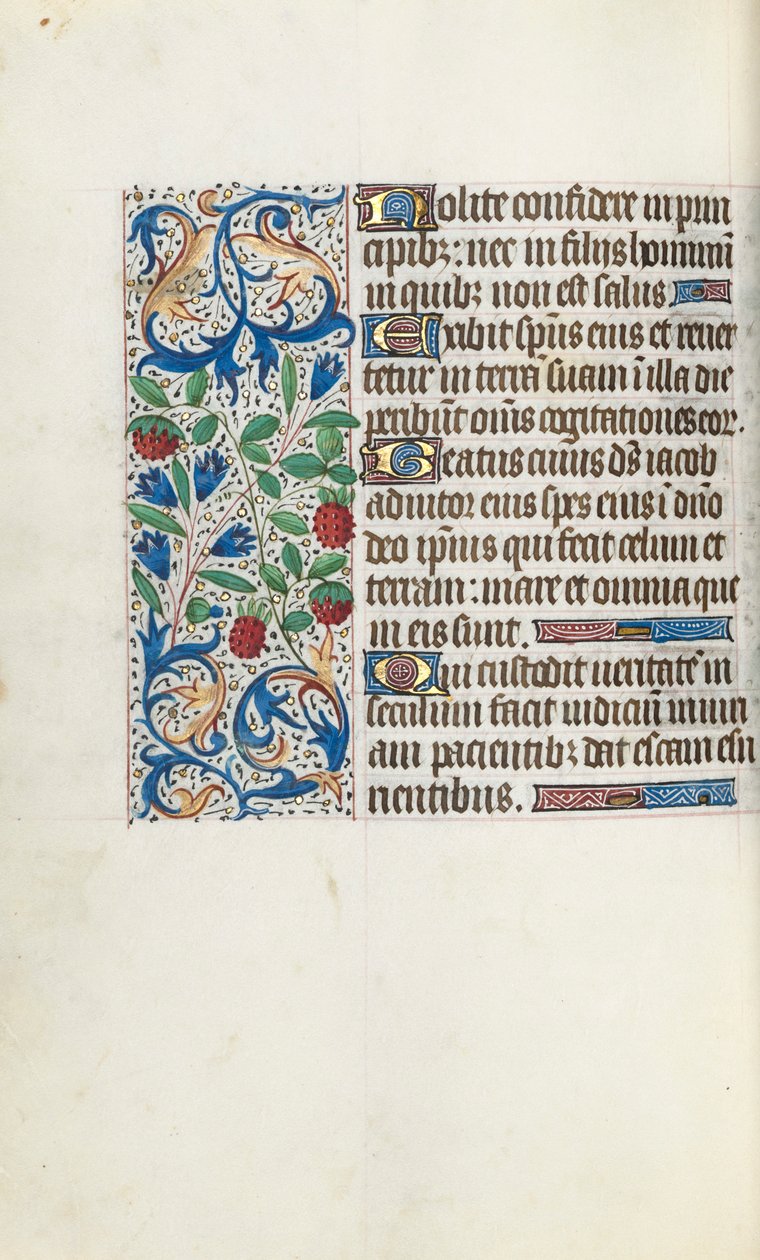 Nolite confidere in prin
cipibꝫ: nec in filijs hominū
in quibꝫ non est salus
Exibit sp̄us eius et rever
tetur in terrā suam ī illa die
peribūt om̄s cogitationes eoꝝ.
Beatus cuius ds̄ iacob
adiutor eius spes eius ī dn̄o
deo ip̄ius qui fecit celum et
terram: mare et omnia que
in eis sunt.
Qui custodit veritatē in
seculum facit iudiciū iniuri
am pacientibꝫ dat escam esu
rientibus.